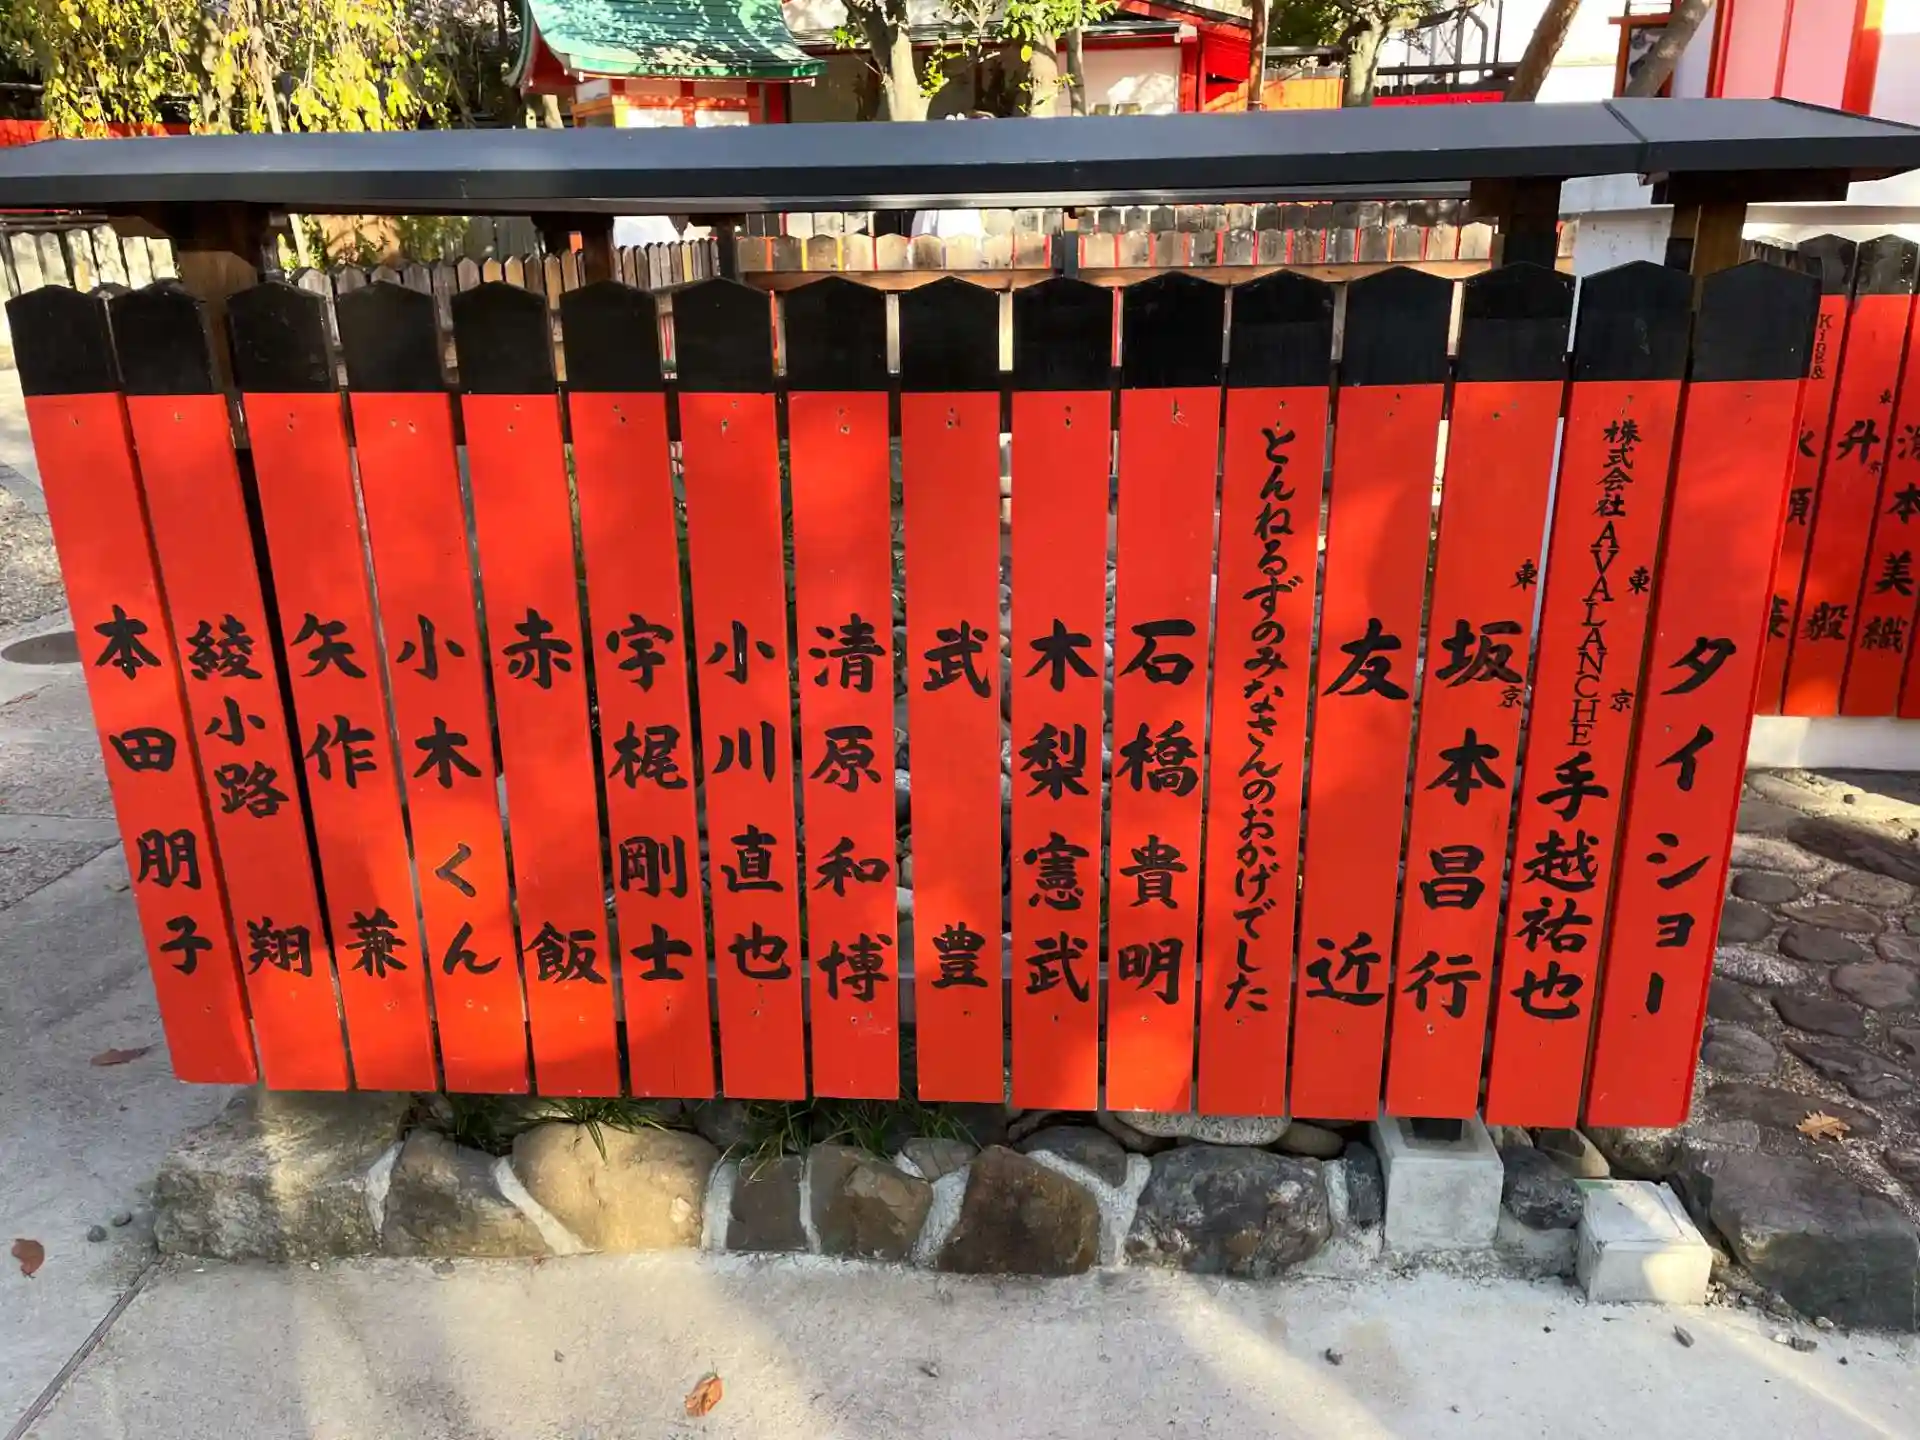 タイショー
株式会社AVALANCHE 手越祐也
東京
坂本昌行
東京
友近
とんねるずのみなさんのおかげでした
石橋貴明
木梨憲武
武豊
清原和博
小川直也
宇梶剛士
赤飯
小木くん
矢作兼
綾小路翔
本田朋子
King&